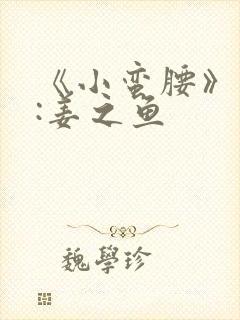 《小蛮腰》
:姜之鱼
魏學珍